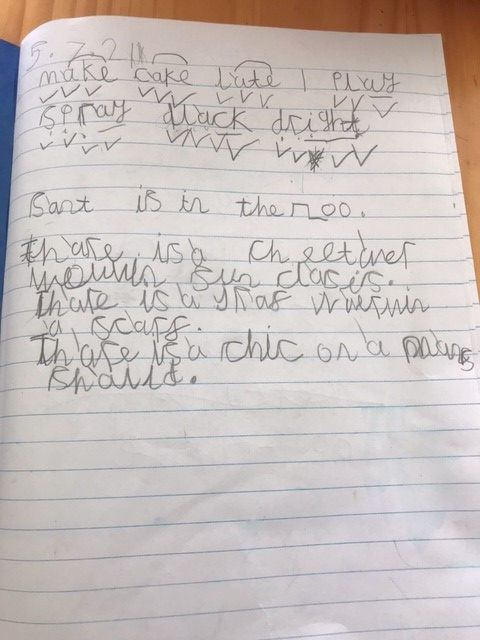 5.7.21
make cake late play
spray black dright
Bart is in the zoo.
thare is a cheetner
wouwin sun clasis.
thare is a
a scarf.
thare is a chic on a
shault.